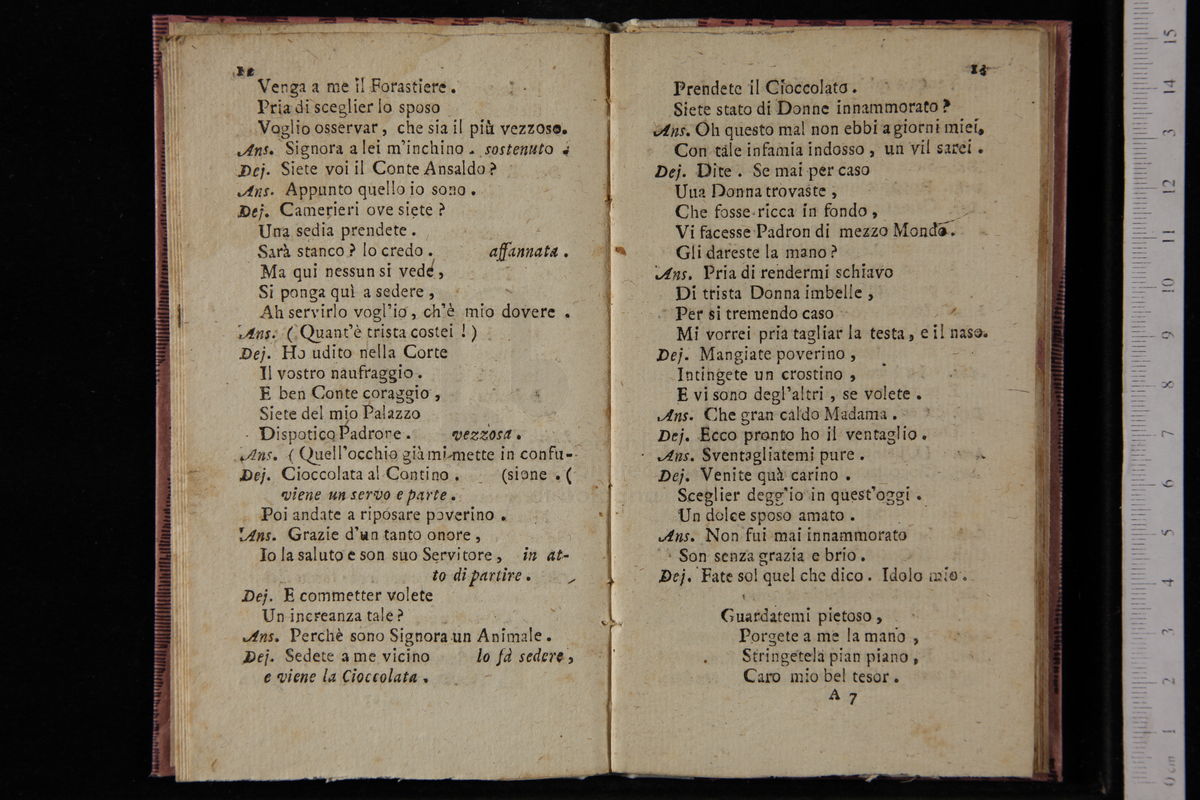 12
Venga a me il Forastiere.
Pria di sceglier lo sposo
Voglio osservar, che sia il più vezzoso.
Ans. Signora a lei m'inchino. sostenuto.
Dej. Siete voi il Conte Ansaldo?
Ans. Appunto quello io sono.
Dej. Camerieri ove siete?
Una sedia prendete.
Sarà stanco? lo credo. affannata.
Ma qui nessun si vede,
Si ponga quì a sedere,
Ah servirlo vogl'io, ch'è mio dovere.
Ans. (Quant'è trista costei!)
Dej. Ho udito nella Corte
Il vostro naufraggio.
E ben Conte coraggio,
Siete del mio Palazzo
Dispotico Padrone. vezzosa.
Ans. (Quell'occhio già mi mette in confu-
Dej. Cioccolata al Contino. (sione.(
viene un servo e parte.
Poi andate a riposare poverino.
Ans. Grazie d'un tanto onore,
Io la saluto e son suo Servitore, in at-
to di partire.
Dej. E commetter volete
Un increanza tale?
Ans. Perchè sono Signora un Animale.
Dej. Sedete a me vicino lo fà sedere,
e viene la Cioccolata.
13
Prendete il Cioccolato.
Siete stato di Donne innammorato?
Ans. Oh questo mal non ebbi a giorni miei.
Con tale infamia indosso, un vil sarei.
Dej. Dite. Se mai per caso
Una Donna trovaste,
Che fosse ricca in fondo,
Vi facesse Padron di mezzo Mondo.
Gli dareste la mano?
Ans. Pria di rendermi schiavo
Di trista Donna imbelle,
Per si tremendo caso
Mi vorrei pria tagliar la testa, e il naso.
Dej. Mangiate poverino,
Intingete un crostino,
E vi sono degl'altri, se volete.
Ans. Che gran caldo Madama.
Dej. Ecco pronto ho il ventaglio.
Ans. Sventagliatemi pure.
Dej. Venite quà carino.
Sceglier degg'io in quest'oggi.
Un dolce sposo amato.
Ans. Non fui mai innammorato
Son senza grazia e brio.
Dej. Fate sol quel che dico. Idolo mio.
Guardatemi pietoso,
Porgete a me la mano,
Stringetela pian piano,
Caro mio bel tesor.
A 7
15
14
13
12
11
10
9
8
7
6
5
4
3
2
1
0 cm